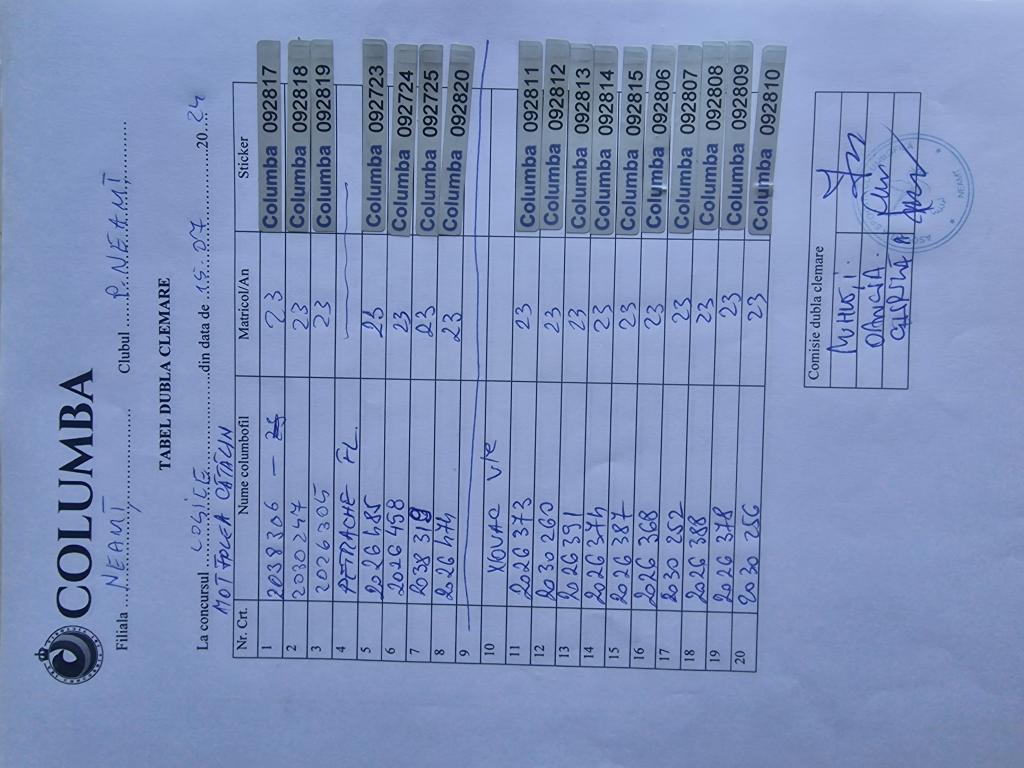 COLUMBA
Filiala NEAMȚ Clubul P. NEAMȚ
TABEL DUBLA CLEMARE
La concursul din data de 15.07 2024
CĂTĂLIN
Nr. Crt. Nume columbofil Matricol/An Sticker
1 2038306 23 Columba 092817
2 2030247 23 Columba 092818
3 2026305 23 Columba 092819
4 PETRACHE FL.
5 2026485 23 Columba 092723
6 2026458 23 Columba 092724
7 2038319 23 Columba 092725
8 2026474 23 Columba 092820
9
10
11 2026373 23 Columba 092811
12 2030260 23 Columba 092812
13 2026391 23 Columba 092813
14 2026374 23 Columba 092814
15 2026387 23 Columba 092815
16 2026368 23 Columba 092806
17 2030252 23 Columba 092807
18 2026388 23 Columba 092808
19 2026378 23 Columba 092809
20 2030256 23 Columba 092810
Comisie dubla clemare